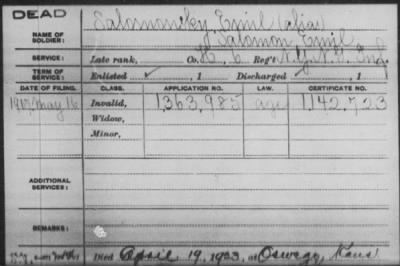 DEAD
NAME OF SOLDIER: Salomonsky, Emil (alias)
Salomon Emil
SERVICE: Late rank, Co. K, 6 Reg't N.Y.N.G. Inf.
TERM OF SERVICE: Enlisted ✓, 1 Discharged ✓, 1
DATE OF FILING. CLASS. APPLICATION NO. LAW. CERTIFICATE NO.
1917 May 16 Invalid, 1,363,985 age 1142,723
Widow,
Minor,
ADDITIONAL SERVICES:
REMARKS:
Died April 19, 1933, at Oswego, Kans